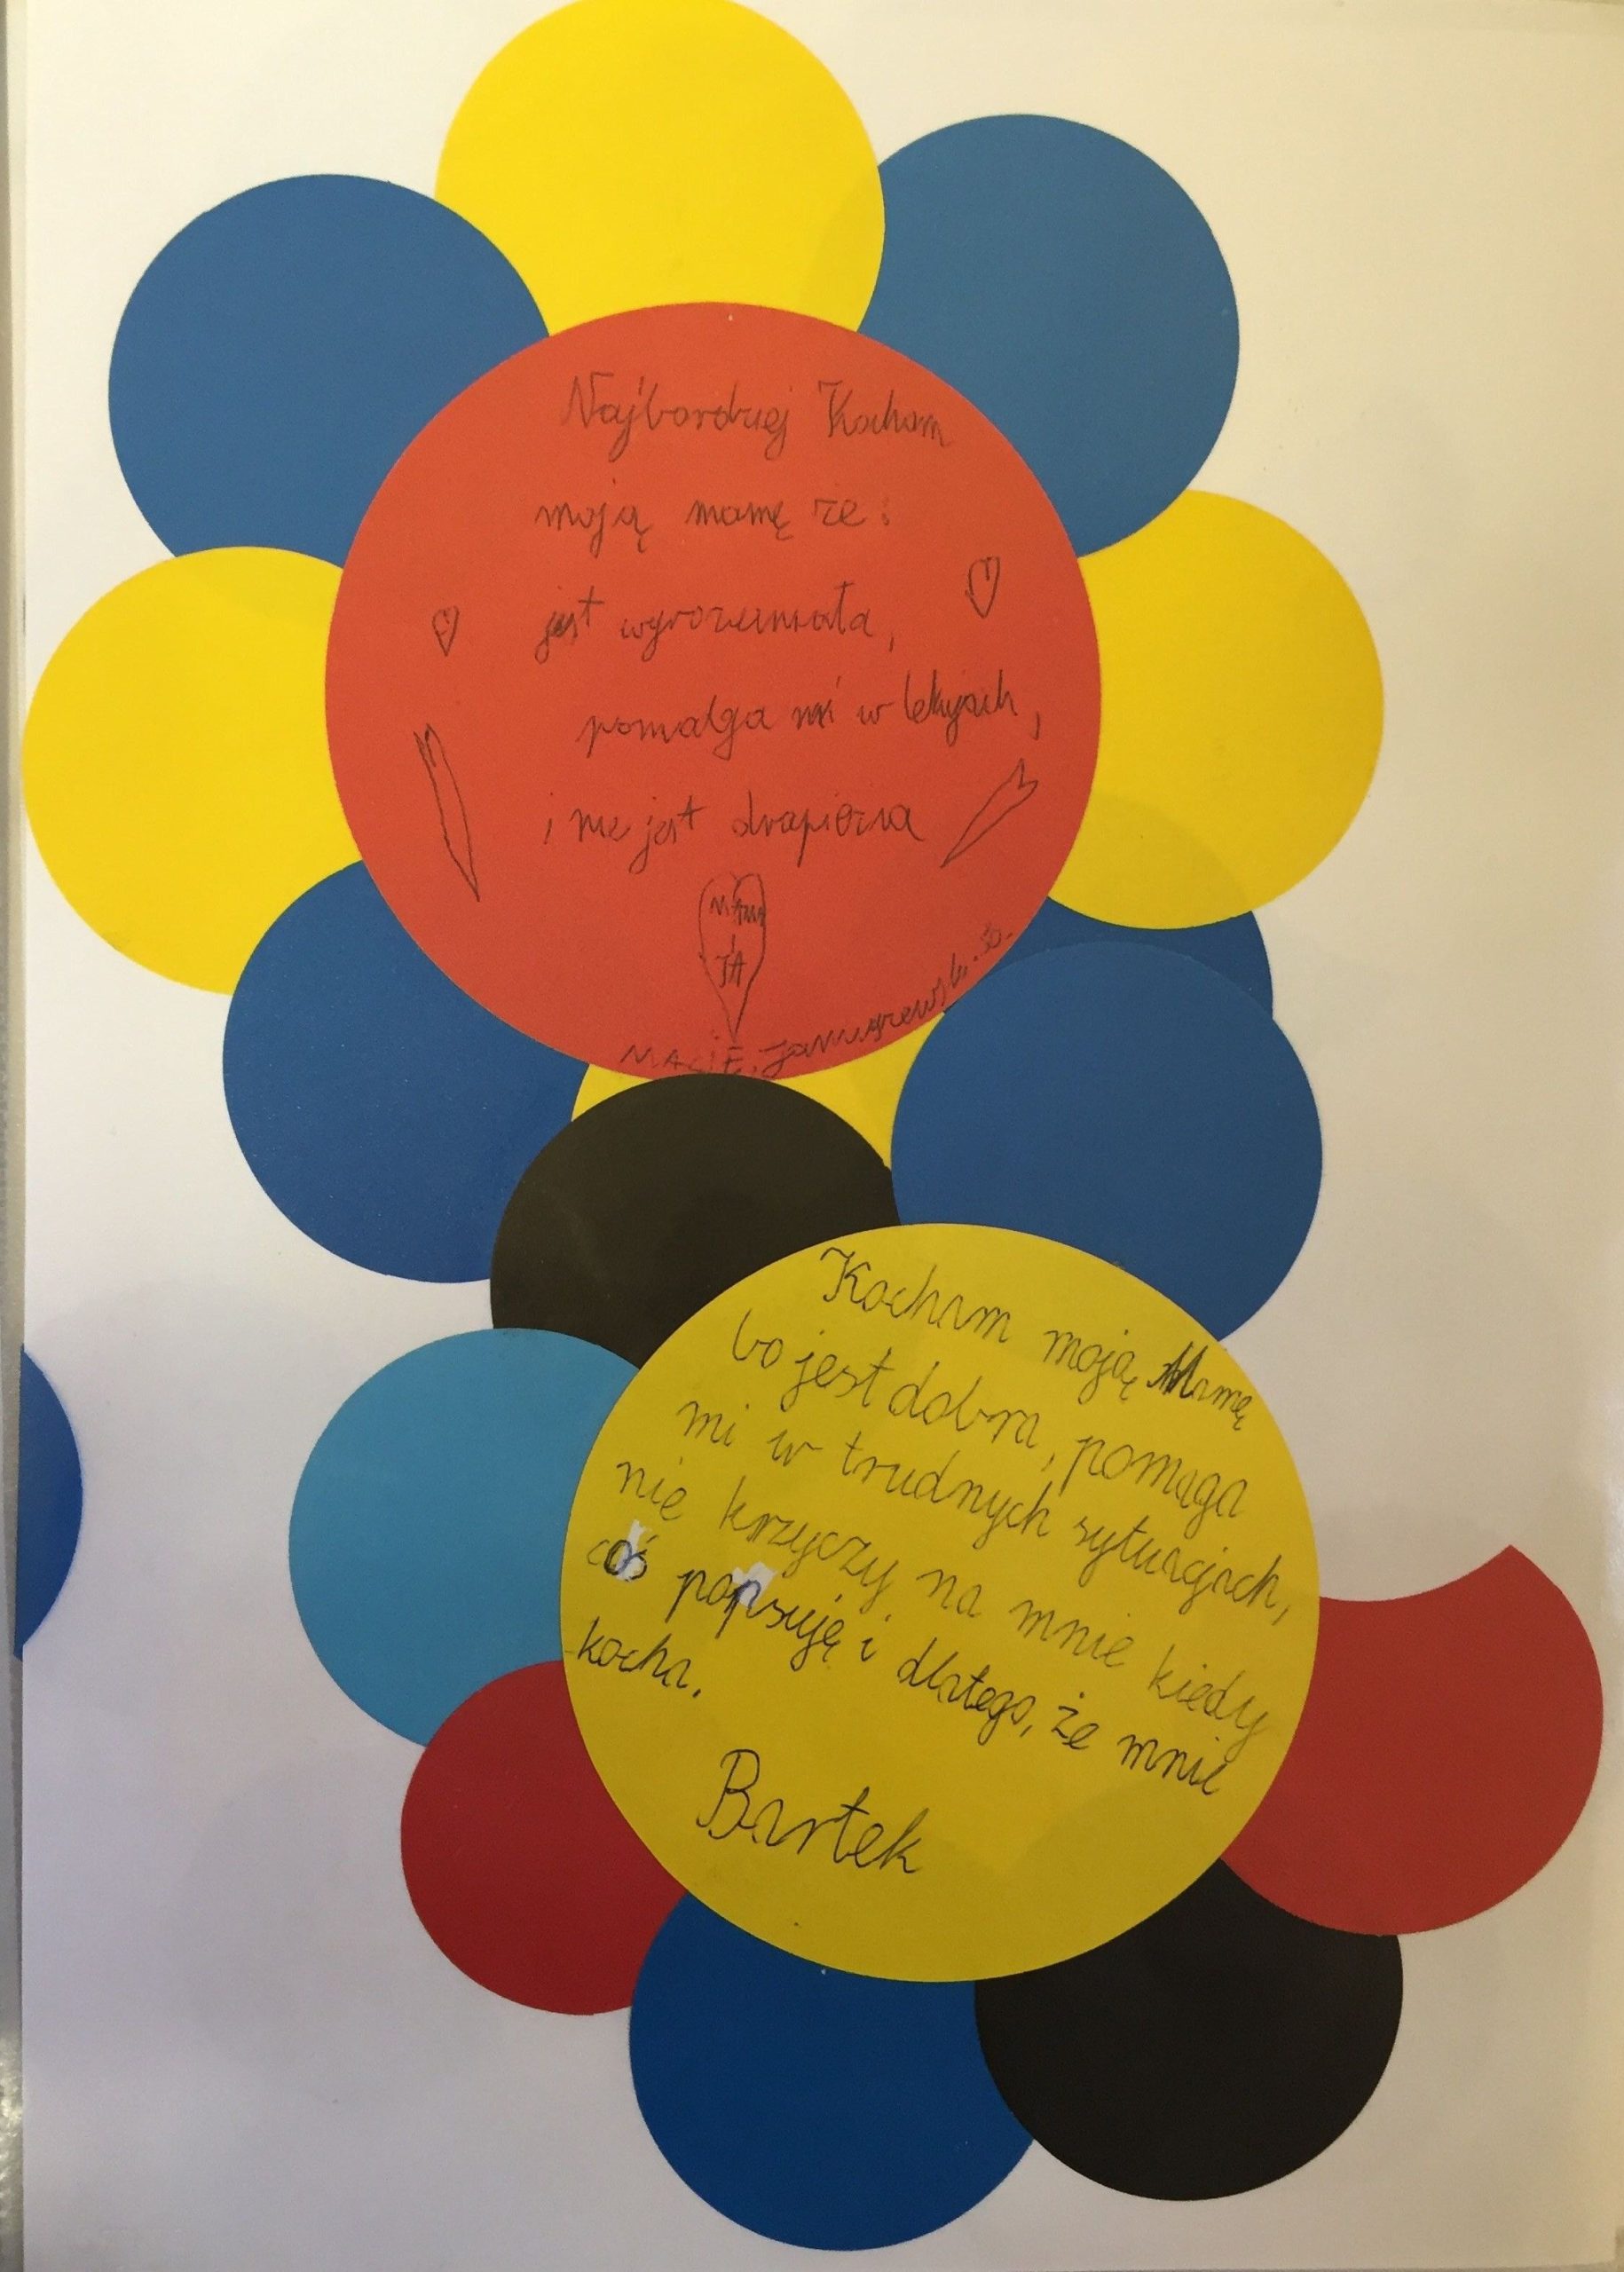 Najbardziej Kocham
moją mamę że:
jest wyrozumiała,
pomaga mi w lekcjach,
i nie jest drapieżna
MAMA
i
JA
Kocham moją Mamę
bo jest dobra, pomaga
mi w trudnych sytuacjach,
nie krzyczy na mnie kiedy
coś popsuję i dlatego, że mnie
kocha.
Bartek